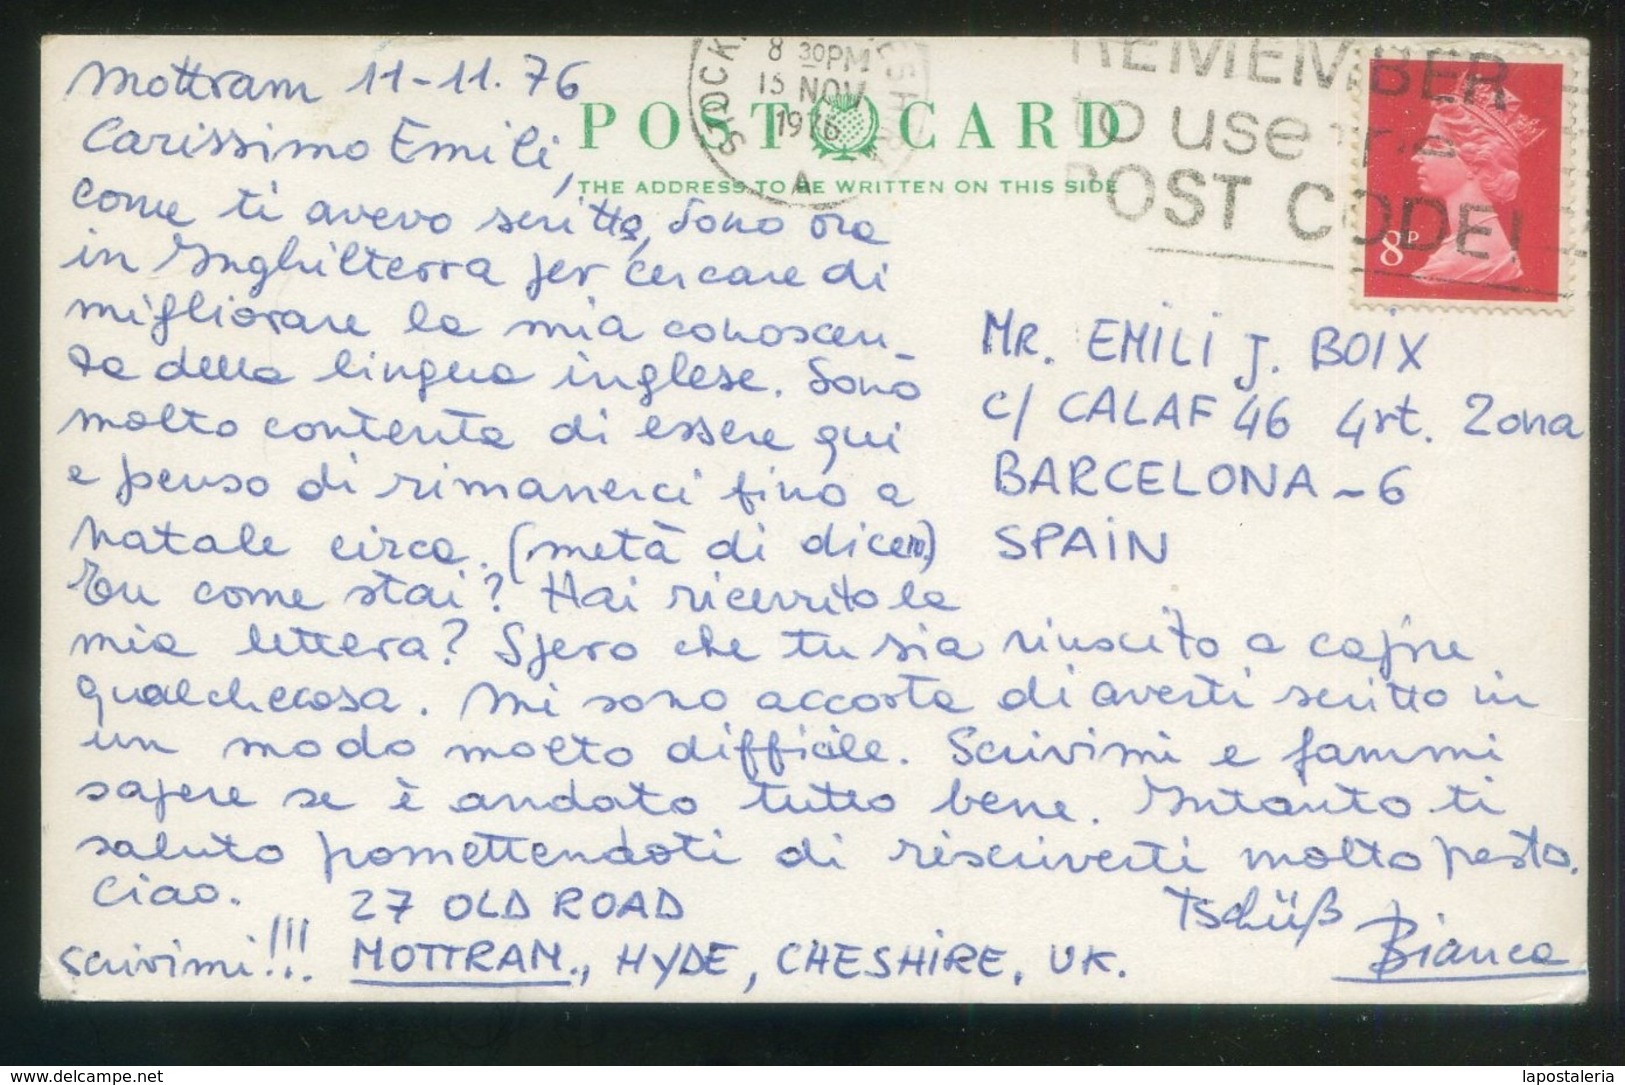 Mottram 11-11.76
Carissimo Emili,
come ti avevo scritto, sono ora
in Inghilterra per cercare di
migliorare la mia conoscen-
za della lingua inglese. Sono
molto contenta di essere qui
e penso di rimanerci fino a
natale circa. (metà di dicem)
Tu come stai? Hai ricevuto la
mia lettera? Spero che tu sia riuscito a capire
qualchecosa. Mi sono accorta di averti scritto in
un modo molto difficile. Scrivimi e fammi
sapere se è andato tutto bene. Intanto ti
saluto promettendoti di riscriverti molto presto.
Ciao.
Tschüß
Bianca
scrivimi!!!
27 OLD ROAD
MOTTRAM., HYDE, CHESHIRE, UK.
POST CARD
THE ADDRESS TO BE WRITTEN ON THIS SIDE
8 30PM
15 NOV
1976
A
REMEMBER
to use the
POST CODE!
8P
MR. EMILI J. BOIX
c/ CALAF 46 4rt. 2ona
BARCELONA-6
SPAIN
https://www.delcampe.net
lapostaleria